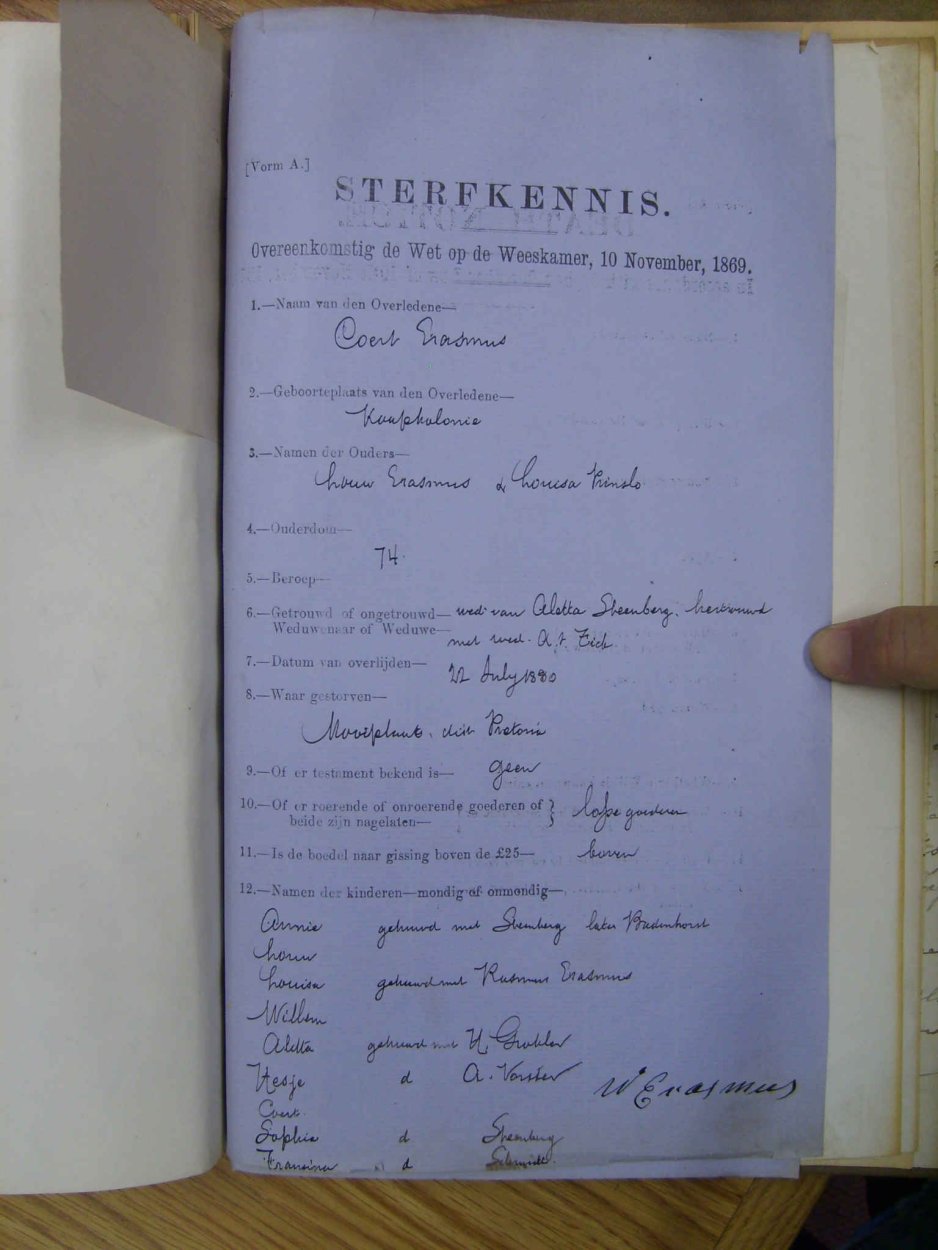 [Vorm A.]
STERFKENNIS.
Overeenkomstig de Wet op de Weeskamer, 10 November, 1869.
1.—Naam van den Overledene—
Coert Erasmus
2.—Geboorteplaats van den Overledene—
Kaapkolonie
3.—Namen der Ouders—
Louw Erasmus & Louisa Prinslo
4.—Ouderdom—
74.
5.—Beroep—
6.—Getrouwd of ongetrouwd— wed. van Aletta Steenberg, hertrouwd
Weduwenaar of Weduwe— met wed.
7.—Datum van overlijden— 22 July 1880
8.—Waar gestorven—
Mooiplaats, dist. Pretoria
9.—Of er testament bekend is— geen
10.—Of er roerende of onroerende goederen of } losse goederen
beide zijn nagelaten—
11.—Is de boedel naar gissing boven de £25— boven
12.—Namen der kinderen—mondig of onmondig—
Annie gehuwd met Steenberg later Badenhorst
Louw
Louisa gehuwd met Rasmus Erasmus
Willem
Aletta gehuwd met H. Grobler
Hesje d A. Vorster
W Erasmus
Coert.
Sophia d Steenberg
Francina d Schmidt.